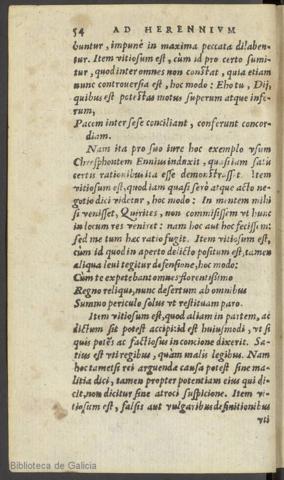 54 AD HERENNIVM
buntur, impunè in maxima peccata dilaben-
tur. Item vitiosum est, cùm id pro certo sumi-
tur, quod inter omnes non constat, quia etiam
nunc controuersia est, hoc modo: Eho tu, Dij,
quibus est potestas motus superum atque infe-
rum,
Pacem inter sese conciliant, conferunt concor-
diam.
Nam ita pro suo iure hoc exemplo vsum
Chresphontem Ennius induxit, quasi iam satis
certis rationibus ita esse demonstrasset. Item
vitiosum est, quod iam quasi serò atque acto ne-
gotio dici videtur, hoc modo: In mentem mihi
si venisset, Quirites, non commisissem vt hunc
in locum res veniret: nam hoc aut hoc fecissem:
sed me tum haec ratio fugit. Item vitiosum est,
cùm id quod in aperto delicto positum est, tamen
aliqua leui tegitur defensione, hoc modo:
Cùm te expetebant omnes florentissimo
Regno reliqui, nunc desertum ab omnibus
Summo periculo solus vt restituam paro.
Item vitiosum est, quod aliam in partem, ac
dictum sit potest accipi: id est huiusmodi, vt si
quis potens ac factiosus in concione dixerit. Sa-
tius est vti regibus, quàm malis legibus. Nam
hoc tametsi rei augendae causa potest sine ma-
litia dici, tamen propter potentiam eius qui di-
cit, non dicitur sine atroci suspicione. Item vi-
tiosum est, falsis aut vulgaribus definitionibus
vti
Biblioteca de Galicia